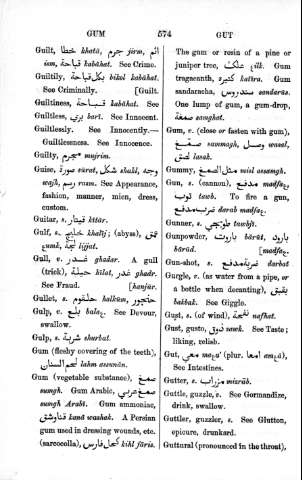 GUM 574 GUT
Guilt, خطا khatá, جرم jirm, اثم
ism, قباحة kabáhat. See Crime.
Guiltily, بكل قباحة bikol kabáhat.
See Criminally. [Guilt.
Guiltiness, قباحة kabáhat. See
Guiltless, بري barí. See Innocent.
Guiltlessly. See Innocently.—
Guiltlessness. See Innocence.
Guilty, مجرم mujrim.
Guise, صورة surat, شكل shakl, وجه
wajh, رسم rasm. See Appearance,
fashion, manner, mien, dress,
custom.
Guitar, s. قيتار kítár.
Gulf, s. خليج khalíj; (abyss), عمق
ɛumk, لجة lijjat.
Gull, v. غدر ghadar. A gull
(trick), حيلة hílat, غدر ghadr.
See Fraud. [hanjúr.
Gullet, s. حلقوم halkúm, حنجور
Gulp, v. بلع balaɛ. See Devour,
swallow.
Gulp, s. شربة shurbat.
Gum (fleshy covering of the teeth),
لحم السنان lahm esennán.
Gum (vegetable substance), صمغ
sumgh. Gum Arabic, صمغ عربي
sumgh Arabí. Gum ammoniac,
قناوشق kaná washak. A Persian
gum used in dressing wounds, etc.
(sarcocolla), كحل فارس kihl fáris.
The gum or resin of a pine or
juniper tree, علك ɛilk. Gum
tragacanth, كثيره katíra. Gum
sandaracha, سندروس sandarús.
One lump of gum, a gum-drop,
صمغة samghat.
Gum, v. (close or fasten with gum),
صمغ sammagh, وصل wasal,
لصق lasak.
Gummy, مثل الصمغ misl assamgh.
Gun, s. (cannon), مدفع madfaɛ,
توب tawb. To fire a gun,
ضرب مدفع darab madfaɛ.
Gunner, s. توبجي tawbjí.
Gunpowder, بارت bárút, بارود
bárúd. [madfaɛ.
Gun-shot, s. ضربة مدفع darbat
Gurgle, v. (as water from a pipe, or
a bottle when decanting), بقبق
bakbak. See Giggle.
Gust, s. (of wind), نفحة nafhat.
Gust, gusto, ذوق zawk. See Taste;
liking, relish.
Gut, معي meɛa' (plur. امعا emɛá).
See Intestines.
Gutter, s. مزراب mizráb.
Guttle, guzzle, v. See Gormandize,
drink, swallow.
Guttler, guzzler, s. See Glutton,
epicure, drunkard.
Guttural (pronounced in the throat),